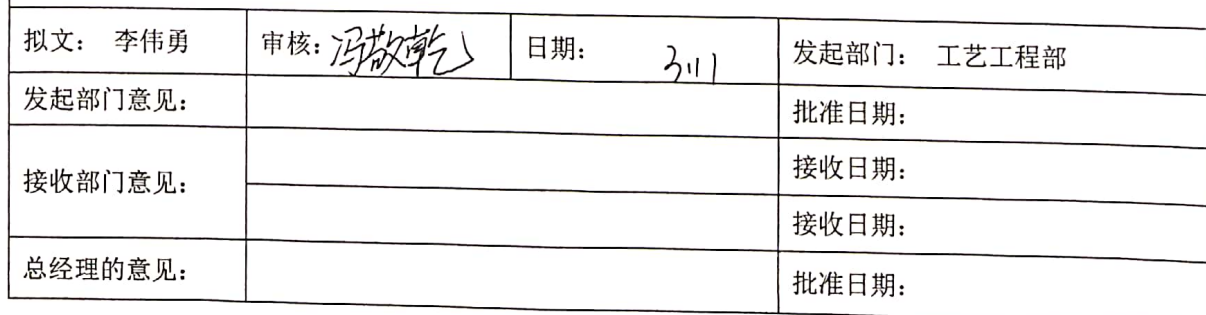 拟文： 李伟勇 审核：冯敬乾 日期： 3.11 发起部门： 工艺工程部
发起部门意见： 批准日期：
接收部门意见： 接收日期：
接收日期：
总经理的意见： 批准日期：